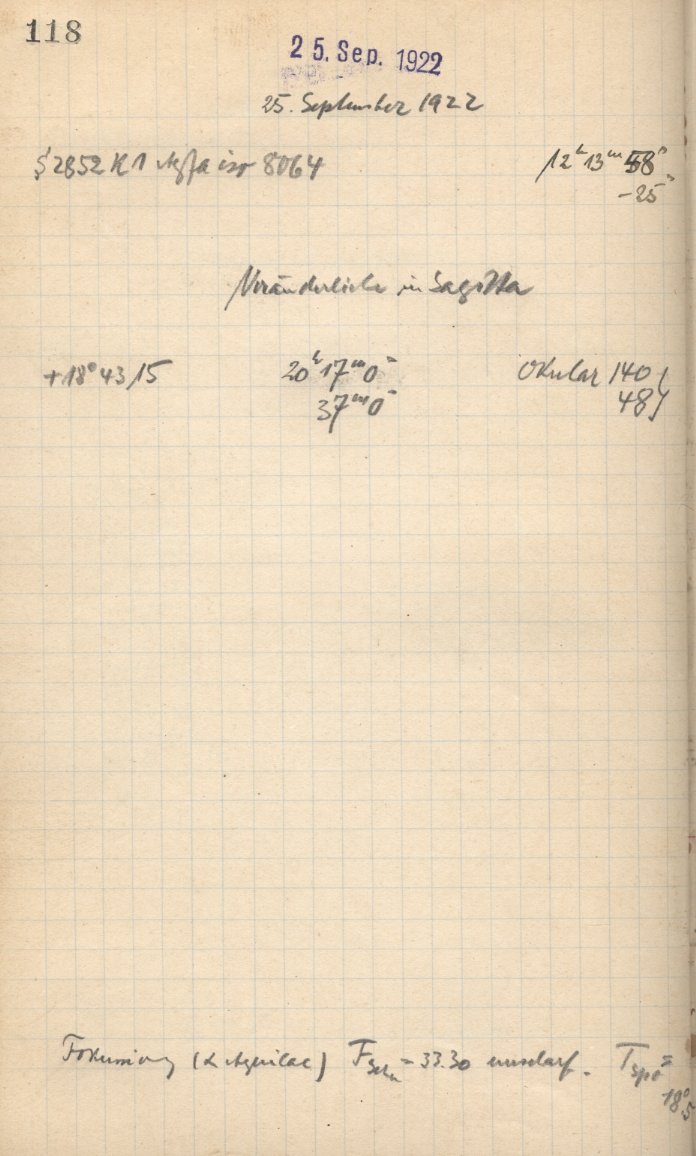 118
25. Sep. 1922
25. September 1922
S 2852 K1 Agfa iso 8064 12h 13m 58s
-25s
Veränderliche in Sagitta
+18° 43,15 20h 17m 0s Okular 140
37m 0s 48
Fokussierung (α Aquilae) F = 33.30 unscharf. T =
18°5